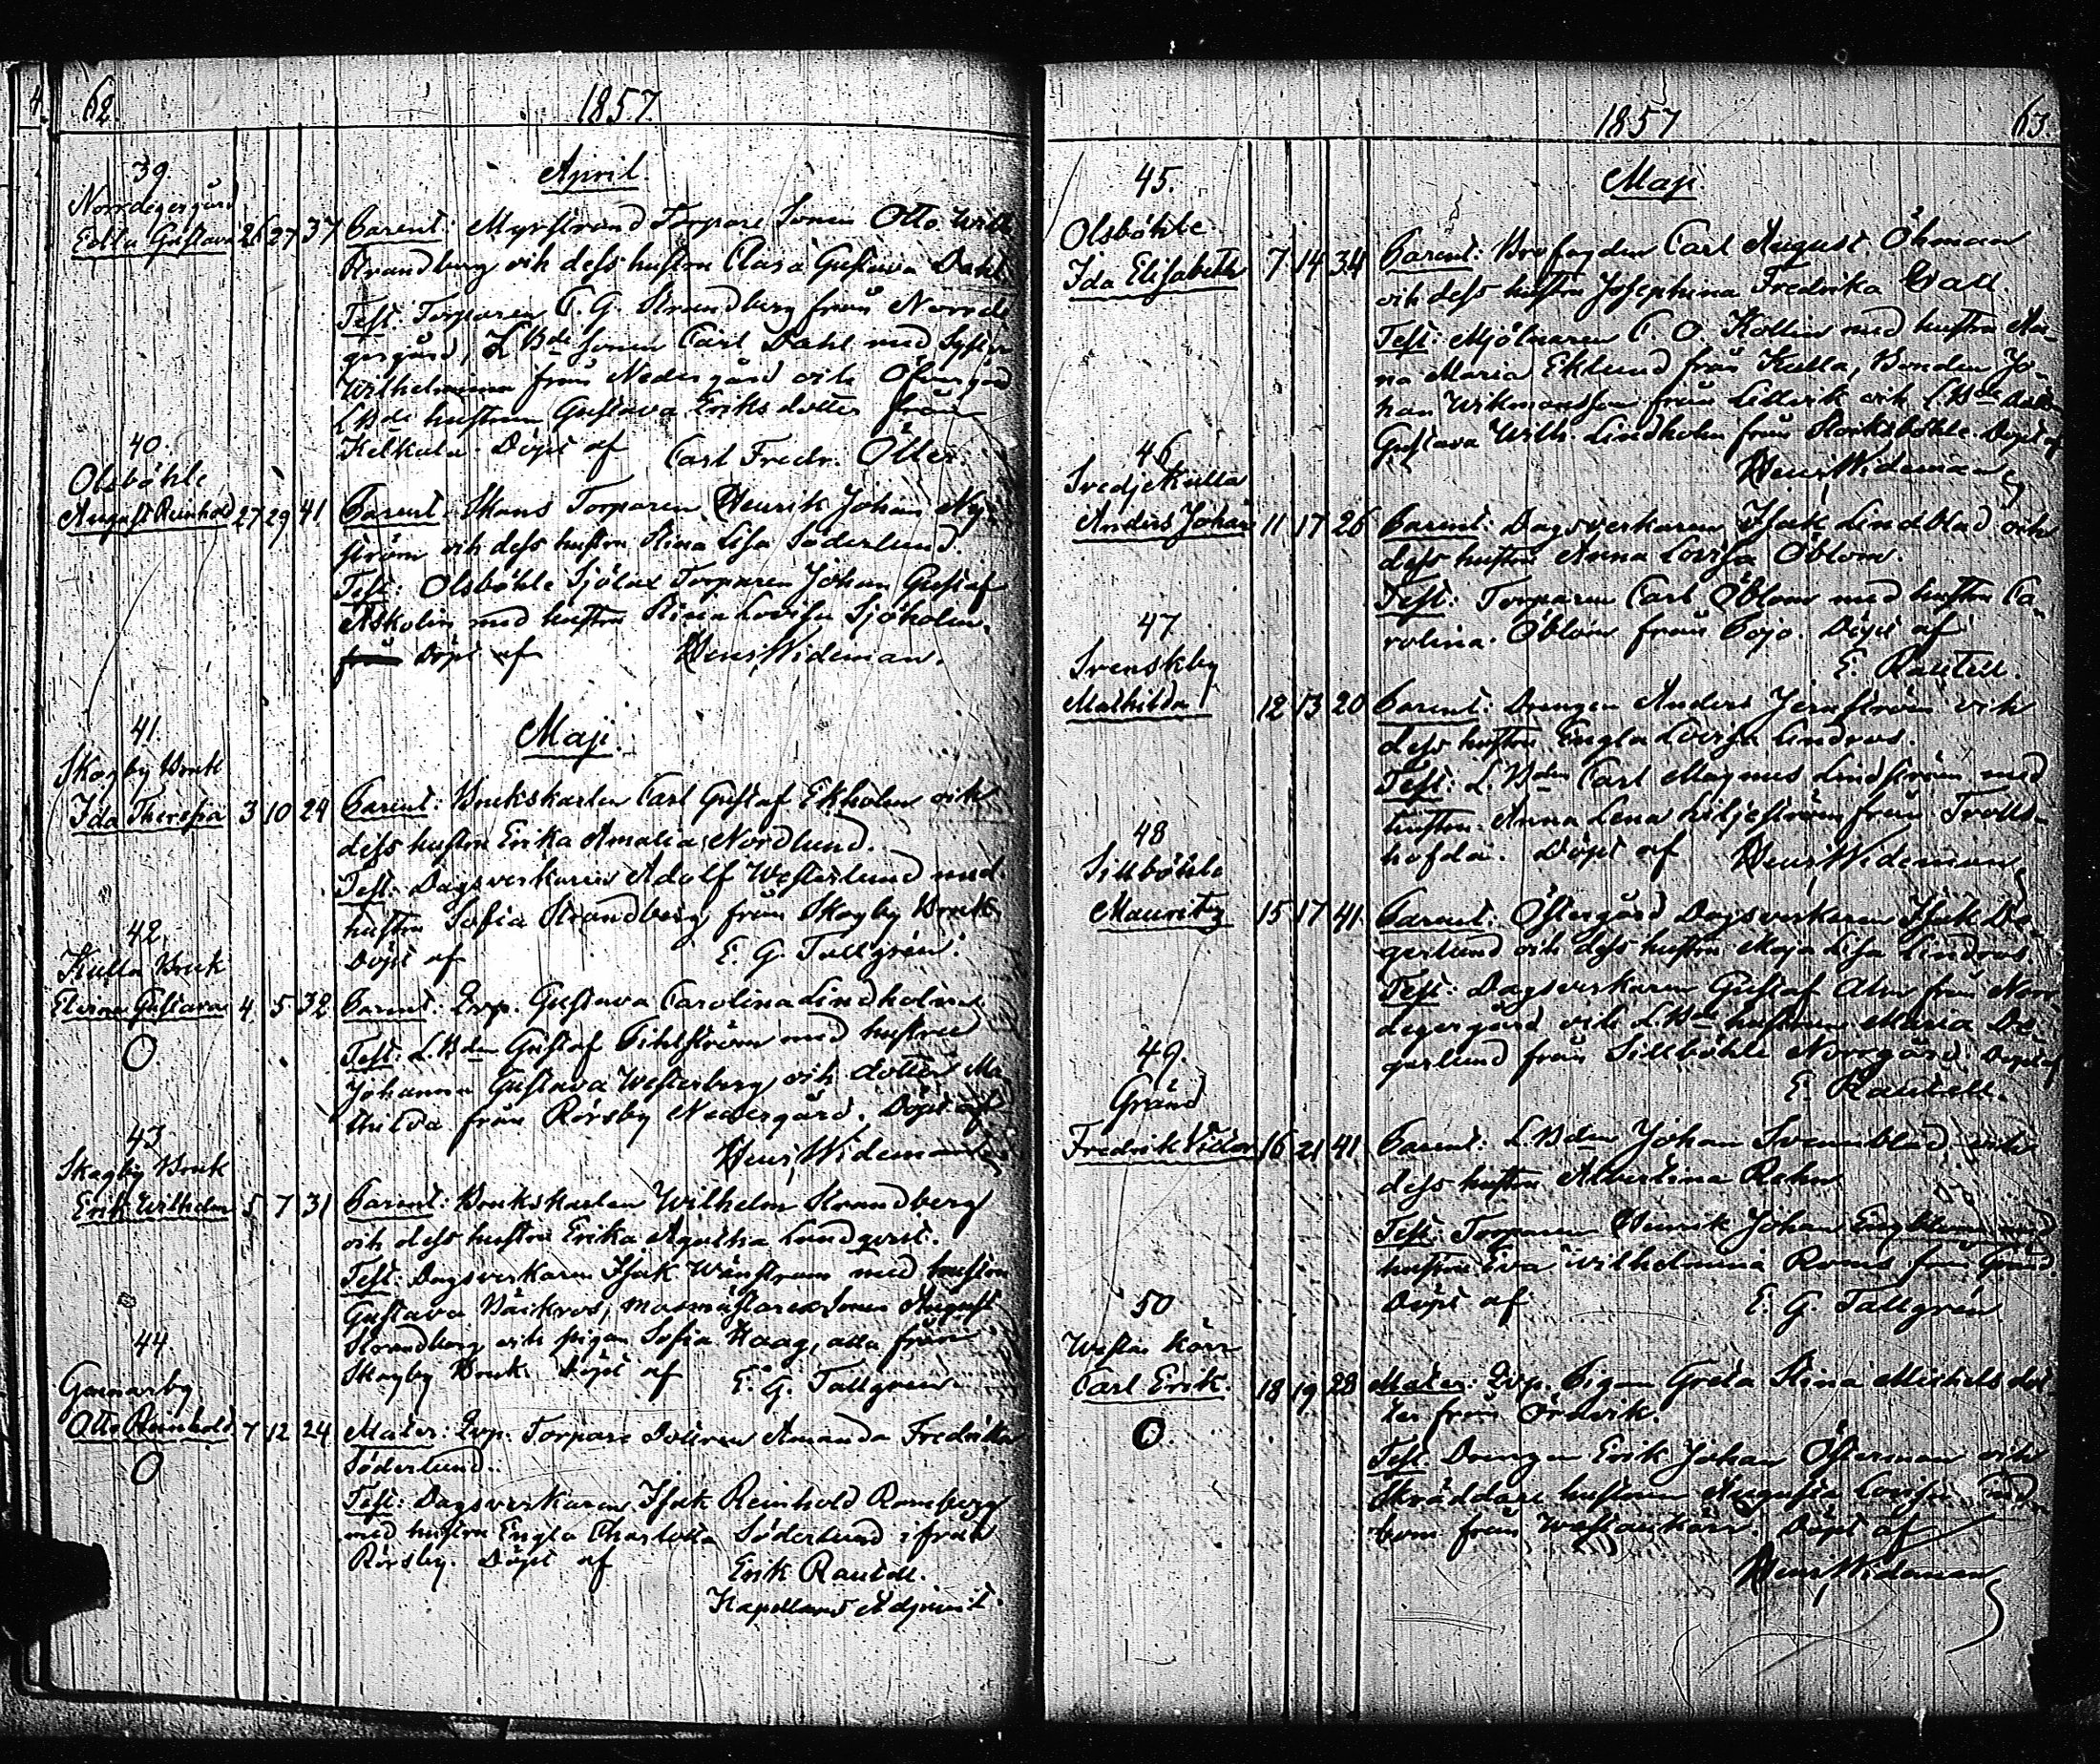 62.
1857.
April.
39.
Norrdegergård
Edla Gustava 26 27 37 Parent: Myrstrand Torpare Sonen Otto Wilh.
Strandberg och dess hustru Clara Gustava Dahl.
Test: Torparen C. G. Strandberg från Norrde
gergård, L Bde Sonen Carl Dahl med Syster
Wilhelmina från Nedergård och Öfvergård
LBde hustrun Gustava Eriksdotter från
Kelkala. Döpt af Carl Fredr. Öller.
40.
Olsböhle
August Reinhold 27 29 41 Parent: Torparen Henrik Johan Ny-
ström och dess hustru Stina Lisa Söderlund.
Test: Olsböhle Torparen Johan Gustaf
Askolin med hustru Stina Lovisa Sjöholm.
från Döpt af Henr. Wideman.
Maji.
41.
Skogby Bruk
Ida Theresia 3 10 24 Parent: Brukskarlen Carl Gustaf Ekholm och
dess hustru Erika Amalia Nordlund.
Test: Dagsverkaren Adolf Westerlund med
hustru Sofia Strandberg från Skogby Bruk.
Döpt af E. G. Tallgrén.
42.
Kulla Bruk
Gustava 4 5 32 Parent: Gustava Carolina Lindholm
Test: L.Bden Gustaf Fihlström med hustru
Johanna Gustava Westerberg och dotter Ma
thilda från Rörsby Nedergård. Döpt af
Henr. Wideman
O
43
Skogby Bruk
Erik Wilhelm 5 7 31 Parent: Brukskarlen Wilhelm Strandberg
och dess hustru Erika Agatha Lundqvist.
Test: Dagsverkaren Isak Wänström med hustru
Gustava Bäckros, masmästaresonen August
Strandberg och pigan Sofia Haag, alla från
Skogby Bruk. Döpt af E. G. Tallgrén.
44.
Gunnarby
Otto Reinhold 7 12 24 Mater: Torpare Dottren Amanda Fredrika
Söderlund.
Test: Dagsverkaren Isak Reinhold Romberg
med hustru Engla Charlotta Söderlund ifrån
Rörsby. Döpt af Erik Rautell.
Kapellans Adjunct.
O
1857
63.
Maji
45.
Olsböhle
Ida Elisabeth 7 14 34 Parent: Carl August Öhman
och dess hustru Josephina Fredrika Gall.
Test: Mjölnaren C. O. Kollin med hustru An-
na Maria Eklund från Kulla, Bonden Jo-
han Wikmansson från Lillvik och LBde
Gustava Wilh. Lindholm från Storksböhle. Döpt af
Henr. Wideman
46
Tredje Kulla
Anders Johan 11 17 26 Parent: Dagsverkaren Isak Lindblad och
dess hustru Anna Lovisa Öblom.
Test: Torparen Carl Öblom med hustru Ca-
rolina Öblom från Pojo. Döpt af
E. Rautell.
47
Svenskby
Mathilda 12 13 20 Parent: Drengen Anders Jernström och
dess hustru Engla Lovisa Lindros.
Test: L.Bden Carl Magnus Lindström med
hustru Anna Lena Liljeström från Trolls-
hofda. Döpt af Henr. Wideman
48
Sillböhle
Mauritz 15 17 41 Parent: Östergård Dagsverkaren Isak De-
gerlund och dess hustru Maja Lisa Lindros.
Test: Dagsverkaren Gustaf Alm från Norr
degergård och L.Bde hustrun Maria De
gerlund från Sillböhle Norrgård. Döpt af
E. Rautell.
49.
Gränd
Fredrik Victor 16 21 41 Parent: LBden Johan Svennblad och
dess hustru Albertina Rehn
Test: Torparen Henrik Johan Engblom med
hustru Eva Wilhelmina Roms från Gränd.
Döpt af E. G. Tallgrén
50
Westankärr
Carl Erik. 18 19 28 Mater: Pigan Greta Stina Michelsdot
ter från Orsvik.
Test Drengen Erik Johan Österman och
Skräddare hustrun Augusta Lovisa
bom från Westankärr. Döpt af
Henr. Wideman
O